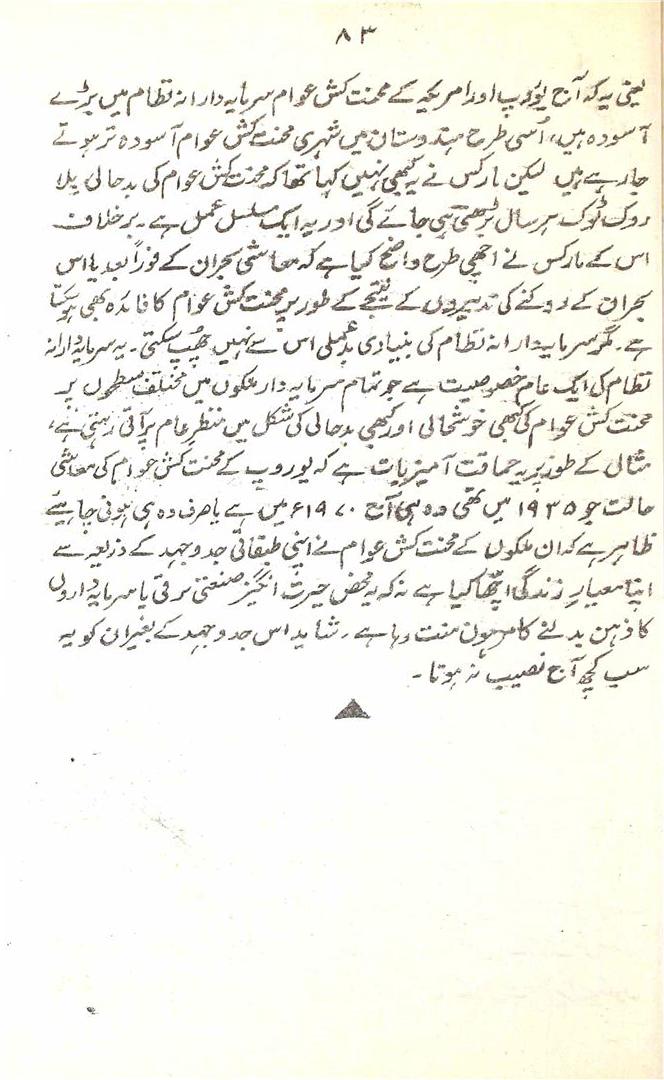 ۸۳
یعنی یہ کہ آج یوروپ اور امریکہ کے محنت کش عوام سرمایہ دارانہ نظام میں بڑے
آسودہ ہیں، اُسی طرح ہندوستان میں شہری محنت کش عوام آسودہ تر ہوتے
جا رہے ہیں لیکن مارکس نے یہ کبھی نہیں کہا تھا کہ محنت کش عوام کی بدحالی بلا
روک ٹوک ہر سال بڑھتی ہی جائے گی اور یہ ایک مسلسل عمل ہے۔ برخلاف
اس کے مارکس نے اچھی طرح واضح کیا ہے کہ معاشی بحران کے فوراً بعد یا اس
بحران کے روکنے کی تدبیروں کے نتیجے کے طور پر محنت کش عوام کا فائدہ بھی ہو سکتا
ہے۔ مگر سرمایہ دارانہ نظام کی بنیادی بدعملی اس سے نہیں چھپ سکتی۔ یہ سرمایہ دارانہ
نظام کی ایک عام خصوصیت ہے جو تمام سرمایہ دار ملکوں میں مختلف سطحوں پر
محنت کش عوام کی کبھی خوشحالی اور کبھی بدحالی کی شکل میں منظرِ عام پر آتی رہتی ہے،
مثال کے طور پر یہ حماقت آمیز بات ہے کہ یوروپ کے محنت کش عوام کی معاشی
حالت جو ۱۹۳۵ میں تھی وہ ہی آج ۱۹۷۰ء میں ہے یا صرف وہ ہی ہونی چاہیئے
ظاہر ہے کہ ان ملکوں کے محنت کش عوام نے اپنی طبقاتی جدوجہد کے ذریعہ سے
اپنا معیارِ زندگی اچھّا کیا ہے نہ کہ یہ محض حیرت انگیز صنعتی ترقی یا سرمایہ داروں
کا ذہن بدلنے کا مرہون منت رہا ہے۔ شاید اس جدوجہد کے بغیر ان کو یہ
سب کچھ آج نصیب نہ ہوتا۔